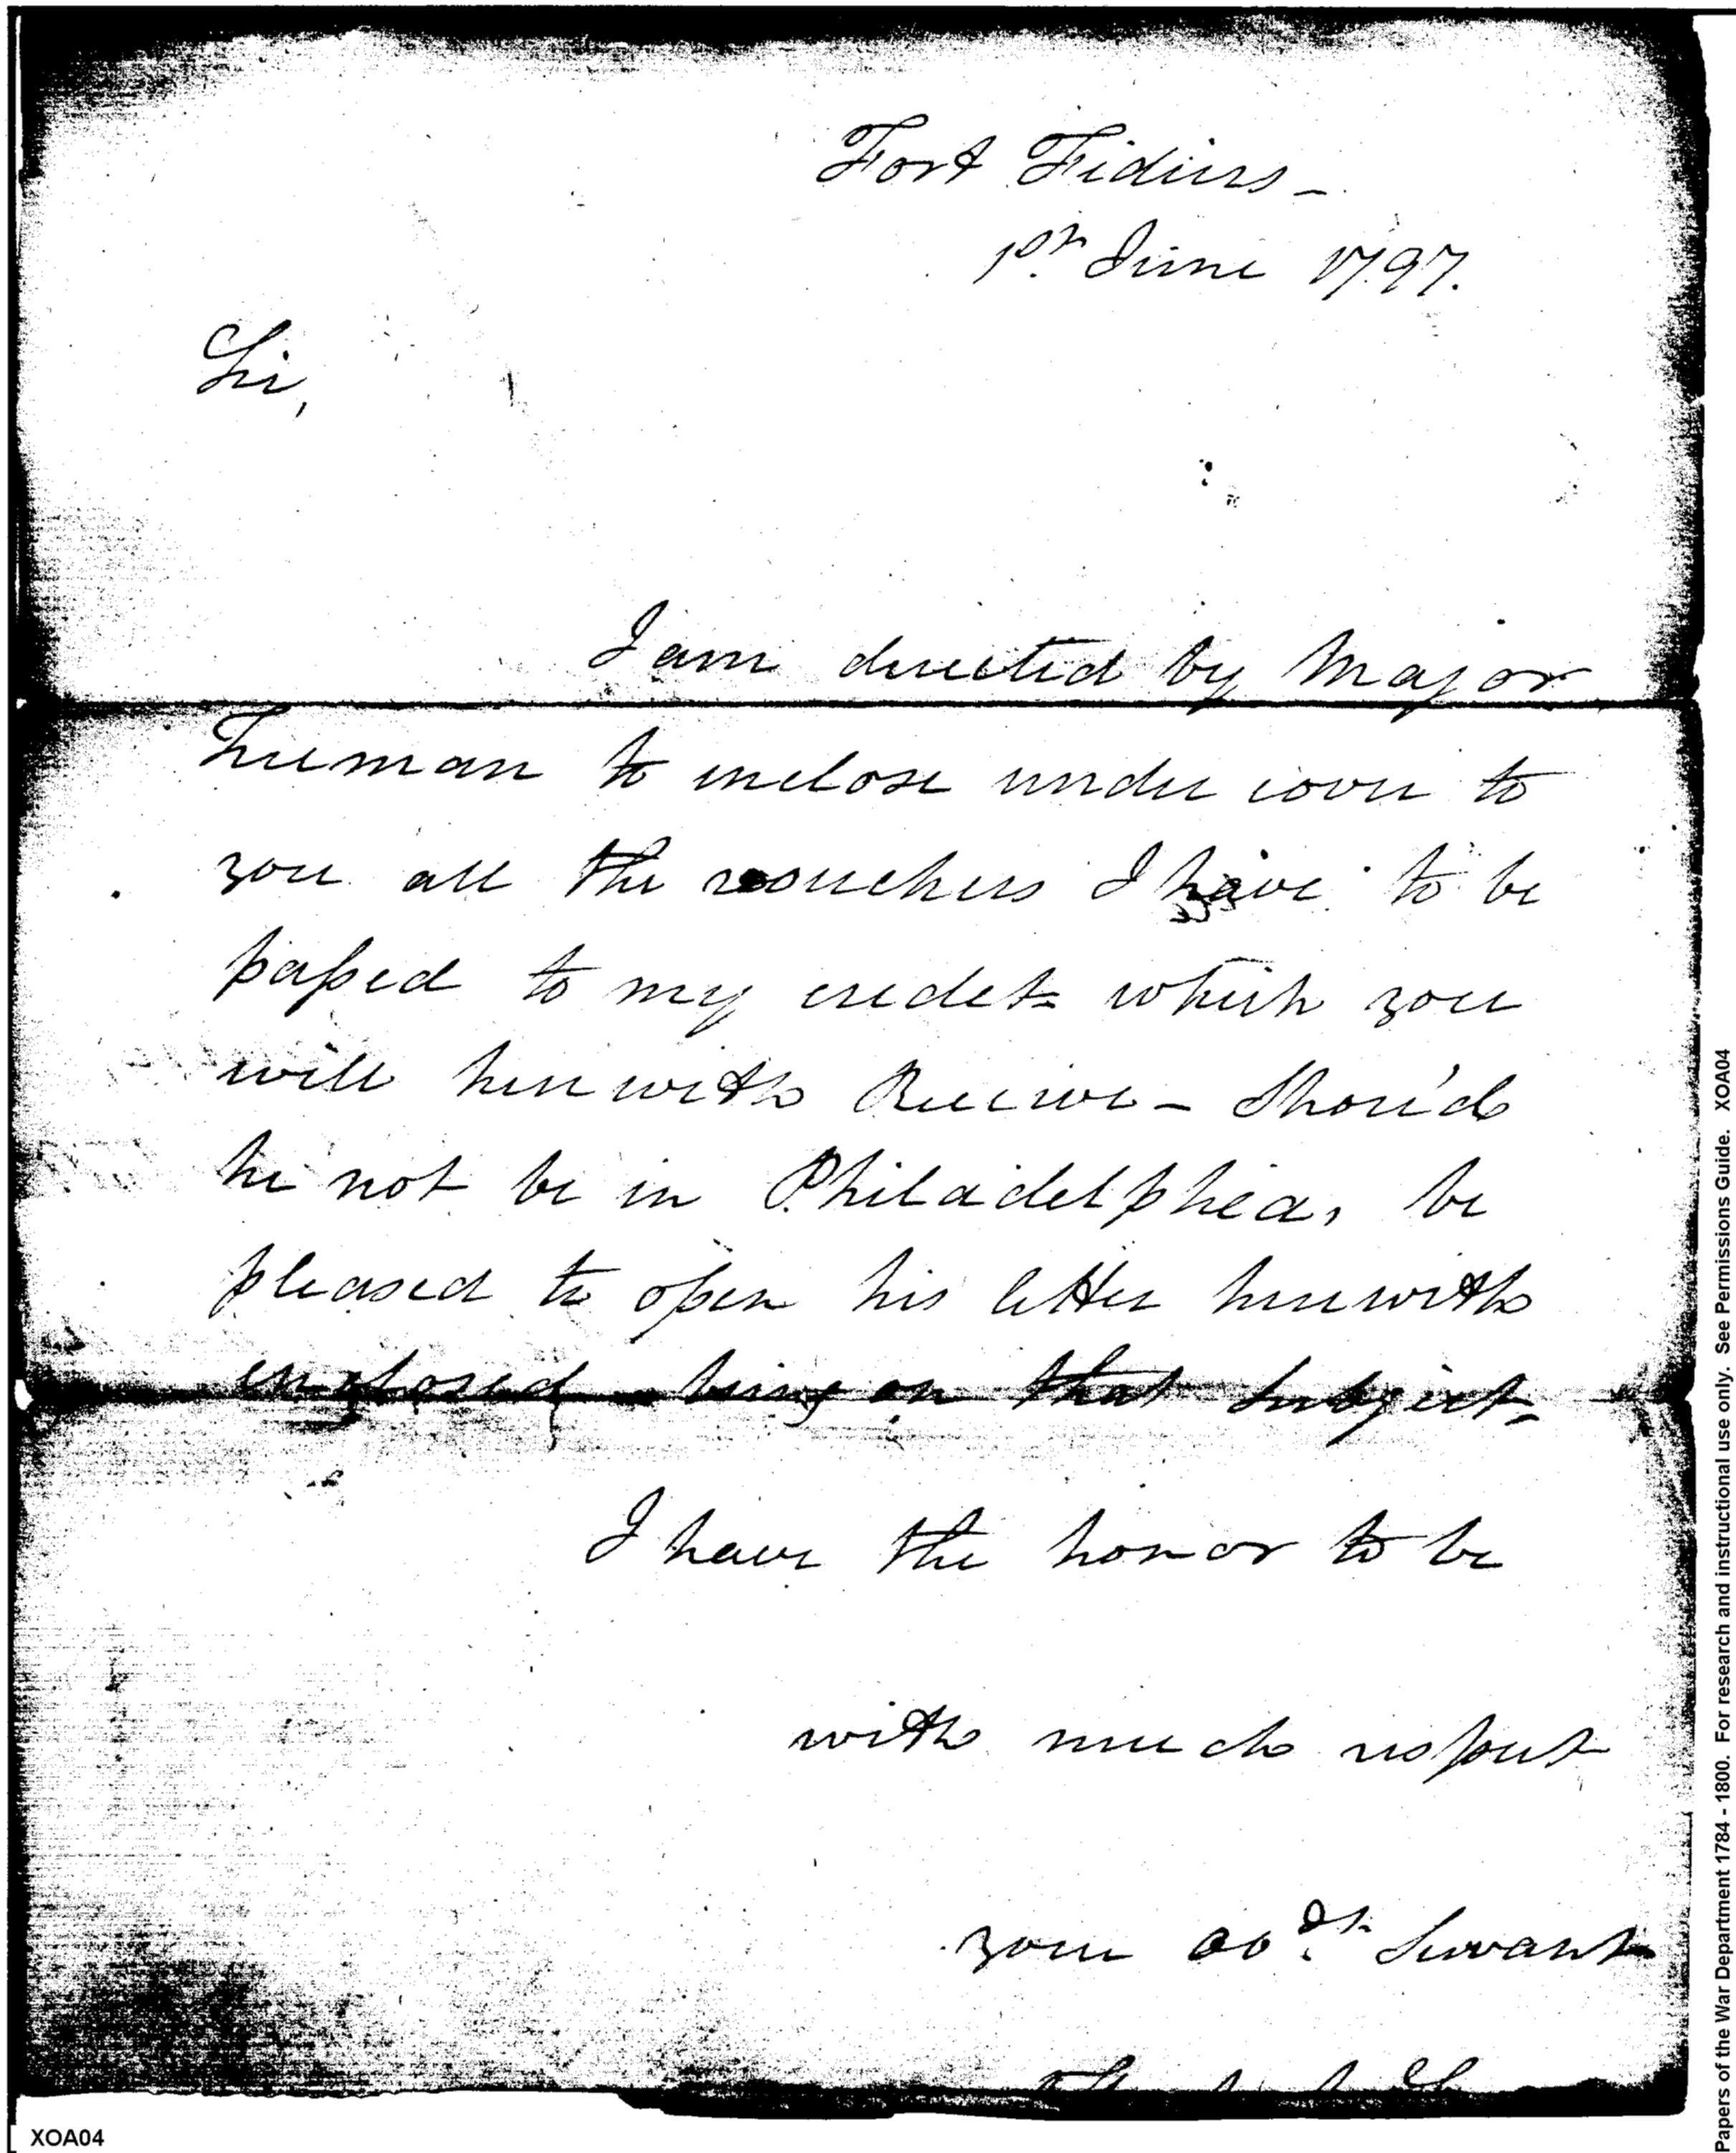 Fort Fidius -
1st June 1797.
Sir,
I am directed by Major
Freeman to inclose under cover to
you all the vouchers I have to be
passed to my credit which you
will herewith Receive - Shou'd
he not be in Philadelphia, be
pleased to open his letter herewith
enclosed - being on that Subject.
I have the honor to be
with much respect
your obdt Servant
XOA04
Papers of the War Department 1784 - 1800. For research and instructional use only. See Permissions Guide. XOA04